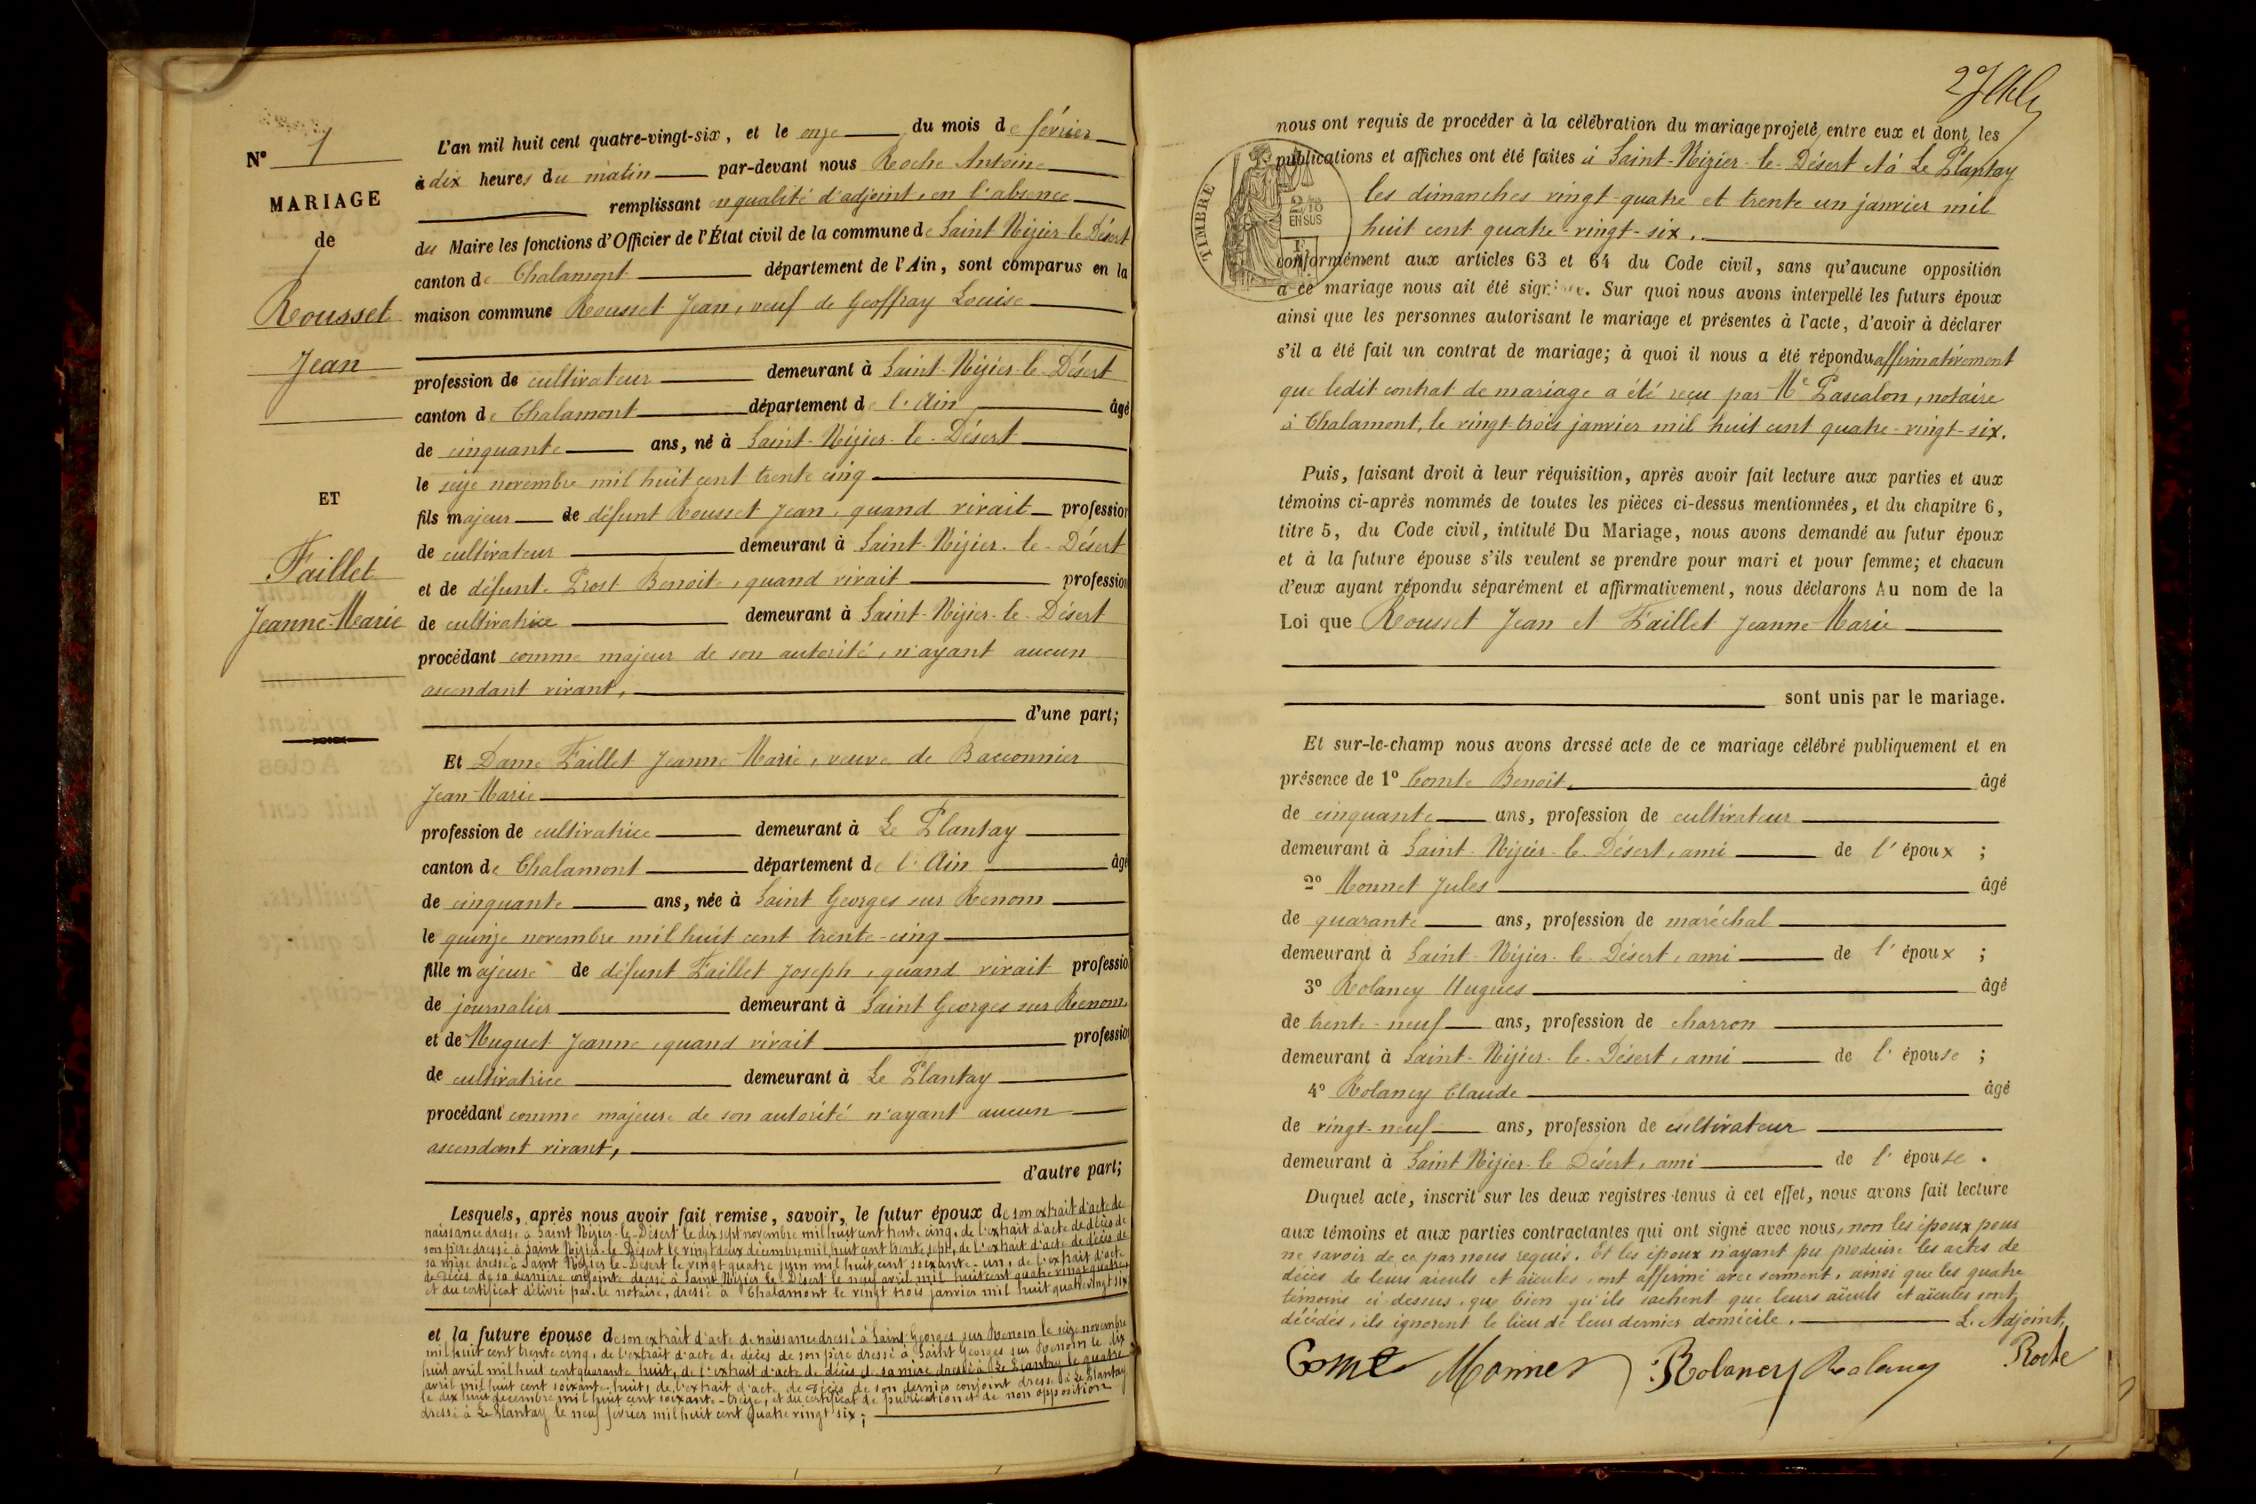 N° 1
MARIAGE
de
Rousset
Jean
ET
Faillet
Jeanne-Marie
L'an mil huit cent quatre-vingt-six, et le onze du mois de février
à dix heures du matin par-devant nous Roche Antoine
remplissant en qualité d'adjoint, en l'absence
du Maire les fonctions d'Officier de l'État civil de la commune de Saint-Nizier-le-Désert
canton de Chalamont département de l'Ain, sont comparus en la
maison commune Rousset Jean, veuf de Geoffray Louise
profession de cultivateur demeurant à Saint-Nizier-le-Désert
canton de Chalamont département de l'Ain âgé
de cinquante ans, né à Saint-Nizier-le-Désert
le seize novembre mil huit cent trente cinq
fils majeur de défunt Rousset Jean, quand vivait profession
de cultivateur demeurant à Saint-Nizier-le-Désert
et de défunte Prost Benoite, quand vivait profession
de cultivatrice demeurant à Saint-Nizier-le-Désert
procédant comme majeur de son autorité, n'ayant aucun
ascendant vivant,
d'une part;
Et Dame Faillet Jeanne-Marie, veuve de Bacconnier
Jean-Marie
profession de cultivatrice demeurant à Le Plantay
canton de Chalamont département de l'Ain âgé
de cinquante ans, née à Saint Georges sur Renom
le quinze novembre mil huit cent trente-cinq
fille majeure de défunt Faillet Joseph, quand vivait profession
de journalier demeurant à Saint Georges sur Renom
et de Muguet Jeanne, quand vivait profession
de cultivatrice demeurant à Le Plantay
procédant comme majeure de son autorité n'ayant aucun
ascendant vivant,
d'autre part;
Lesquels, après nous avoir fait remise, savoir, le futur époux de son extrait d'acte de
naissance dressé à Saint Nizier-le-Désert le dix sept novembre mil huit cent trente cinq, de l'extrait d'acte de décès de
son père dressé à Saint Nizier-le-Désert le vingt deux décembre mil huit cent trente sept, de l'extrait d'acte de décès de
sa mère dressé à Saint Nizier-le-Désert le vingt quatre juin mil huit cent soixante-un, de l'extrait d'acte
de décès de sa dernière conjointe dressé à Saint Nizier le Désert le neuf avril mil huit cent quatre vingt quatre,
et du certificat délivré par le notaire, dressé à Chalamont le vingt trois janvier mil huit quatre vingt six
et la future épouse de son extrait d'acte de naissance dressé à Saint-Georges sur Renom le seize novembre
mil huit cent trente cinq, de l'extrait d'acte de décès de son père dressé à Saint Georges sur Renom le dix
huit avril mil huit cent quarante huit, de l'extrait d'acte de décès de sa mère dressé à Le Plantay le quatre
avril mil huit cent soixante-huit, de l'extrait d'acte de décès de son dernier conjoint dressé à Le Plantay
le dix huit décembre mil huit cent soixante-treize, et du certificat de publication et de non opposition
dressé à Le Plantay le neuf février mil huit cent quatre vingt six;
27
nous ont requis de procéder à la célébration du mariage projeté entre eux et dont les
publications et affiches ont été faites à Saint-Nizier-le-Désert et à Le Plantay
les dimanches vingt-quatre et trente un janvier mil
huit cent quatre-vingt-six.
TIMBRE
2/10
EN SUS
conformément aux articles 63 et 64 du Code civil, sans qu'aucune opposition
à ce mariage nous ait été signifiée. Sur quoi nous avons interpellé les futurs époux
ainsi que les personnes autorisant le mariage et présentes à l'acte, d'avoir à déclarer
s'il a été fait un contrat de mariage; à quoi il nous a été répondu affirmativement
que ledit contrat de mariage a été reçu par Me Pascalon, notaire
à Chalamont, le vingt trois janvier mil huit cent quatre-vingt-six.
Puis, faisant droit à leur réquisition, après avoir fait lecture aux parties et aux
témoins ci-après nommés de toutes les pièces ci-dessus mentionnées, et du chapitre 6,
titre 5, du Code civil, intitulé Du Mariage, nous avons demandé au futur époux
et à la future épouse s'ils veulent se prendre pour mari et pour femme; et chacun
d'eux ayant répondu séparément et affirmativement, nous déclarons Au nom de la
Loi que Rousset Jean et Faillet Jeanne-Marie
sont unis par le mariage.
Et sur-le-champ nous avons dressé acte de ce mariage célébré publiquement et en
présence de 1° Comte Benoit, âgé
de cinquante ans, profession de cultivateur
demeurant à Saint-Nizier-le-Désert, ami de l'époux ;
2° Monnet Jules âgé
de quarante ans, profession de maréchal
demeurant à Saint-Nizier-le-Désert, ami de l'époux ;
3° Rolancy Hugues âgé
de trente-neuf ans, profession de charron
demeurant à Saint-Nizier-le-Désert, ami de l'épouse ;
4° Rolancy Claude âgé
de vingt-neuf ans, profession de cultivateur
demeurant à Saint Nizier-le Désert, ami de l'épouse.
Duquel acte, inscrit sur les deux registres tenus à cet effet, nous avons fait lecture
aux témoins et aux parties contractantes qui ont signé avec nous, non les époux pour
ne savoir de ce par nous requis. Et les époux n'ayant pu produire les actes de
décès de leurs aïeuls et aïeules, ont affirmé avec serment, ainsi que les quatre
témoins ci-dessus, que bien qu'ils sachent que leurs aïeuls et aïeules sont
décédés, ils ignorent le lieu de leur dernier domicile. L'Adjoint,
Comte Monnet Rolancy Rolancy Roche